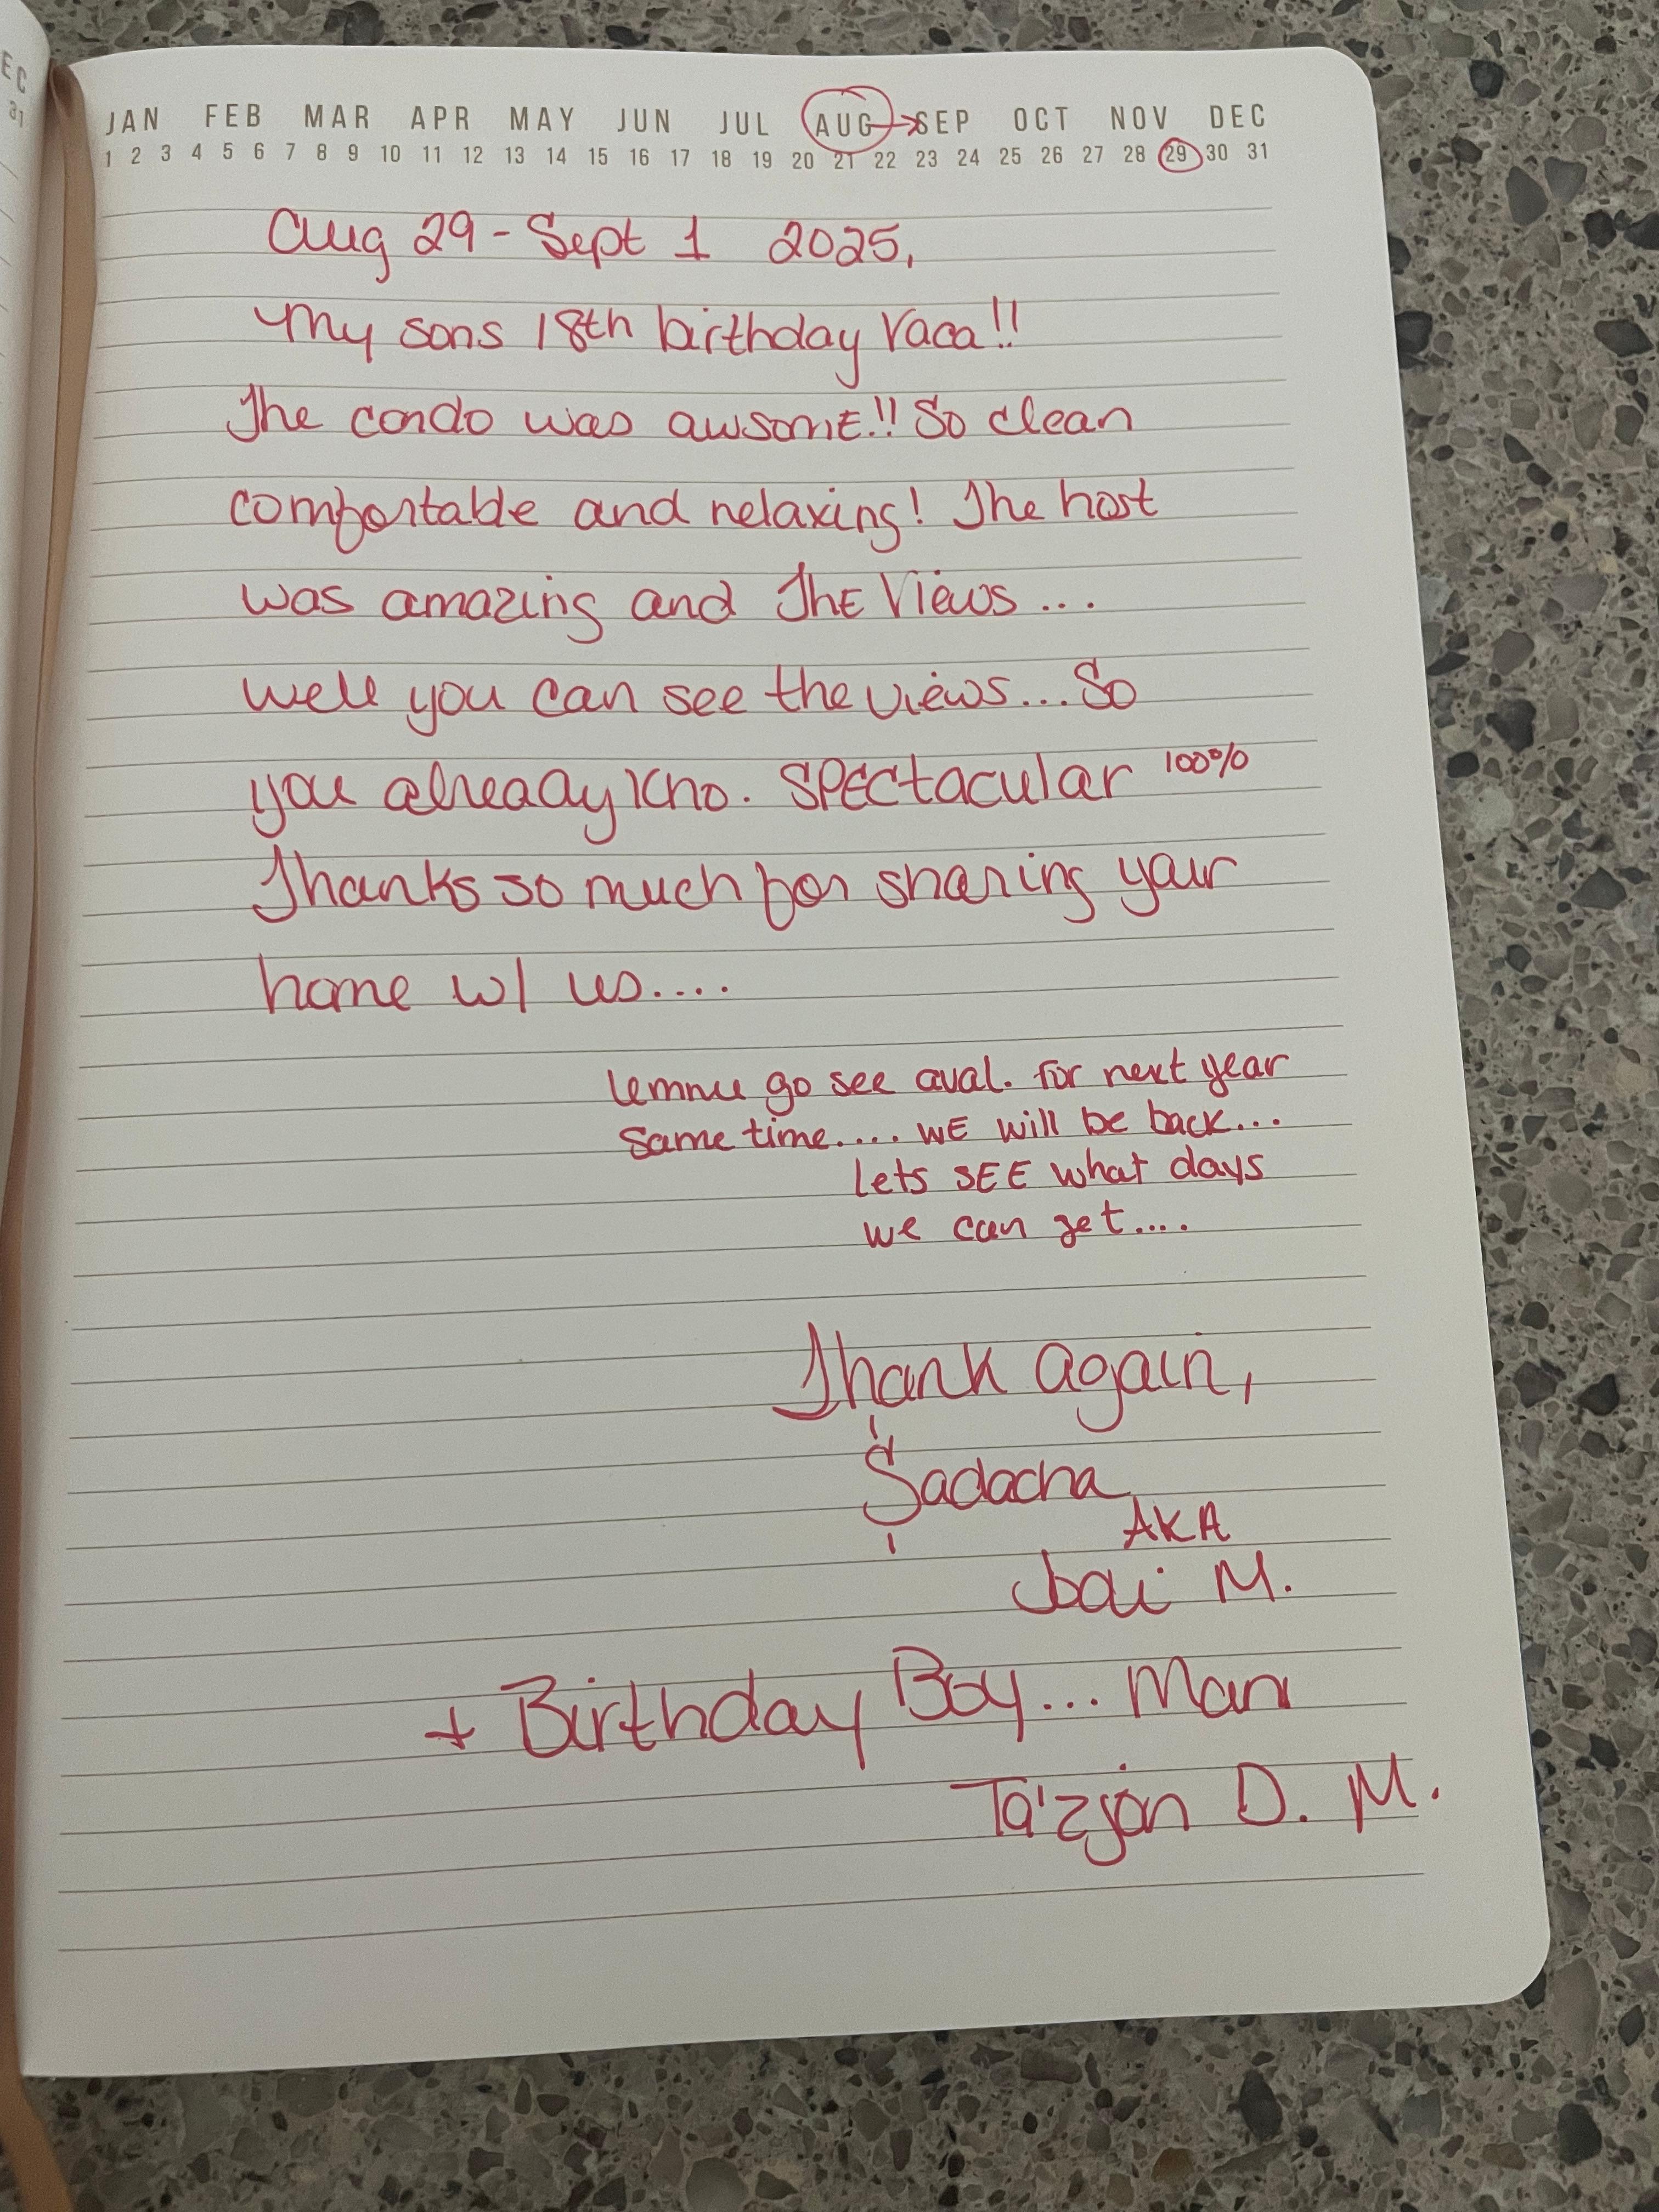 EC
31
JAN FEB MAR APR MAY JUN JUL AUG → SEP OCT NOV DEC
1 2 3 4 5 6 7 8 9 10 11 12 13 14 15 16 17 18 19 20 21 22 23 24 25 26 27 28 29 30 31
Aug 29 - Sept 1 2025,
My sons 18th birthday Vaca!!
The condo was awsome!! So clean
comfortable and relaxing! The host
was amazing and The Views ...
well you can see the views... So
you already kno. SPECtacular 100%
Thanks so much for sharing your
home w/ us....
lemme go see aval. for next year
same time.... WE will be back...
Lets SEE what days
we can get....
Thank again,
Sadacha
AKA
Jai M.
+ Birthday Boy... Man
Ta'zjon D. M.